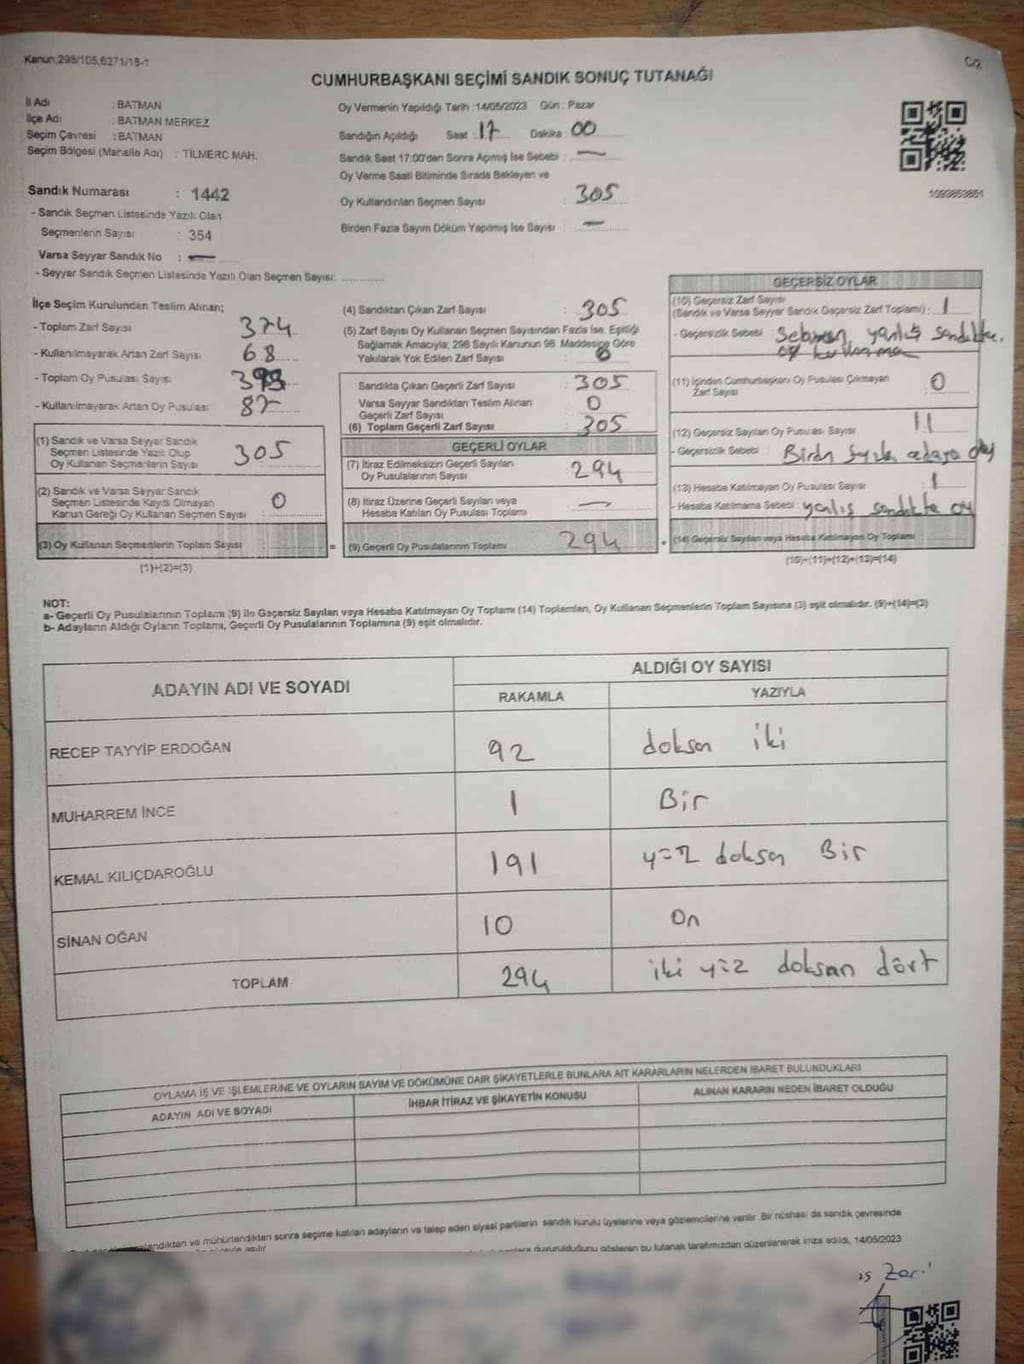 Kanun;298/105,6271/18-1
C/2
CUMHURBAŞKANI SEÇİMİ SANDIK SONUÇ TUTANAĞI
İl Adı : BATMAN
İlçe Adı : BATMAN MERKEZ
Seçim Çevresi : BATMAN
Seçim Bölgesi (Mahalle Adı) : TİLMERC MAH.
Sandık Numarası : 1442
- Sandık Seçmen Listesinde Yazılı Olan
Seçmenlerin Sayısı : 354
Varsa Seyyar Sandık No : —
- Seyyar Sandık Seçmen Listesinde Yazılı Olan Seçmen Sayısı: ............
Oy Vermenin Yapıldığı Tarih : 14/05/2023 Gün : Pazar
Sandığın Açıldığı Saat : 17 Dakika : 00
Sandık Saat 17:00'den Sonra Açımış İse Sebebi : —
Oy Verme Saati Bitiminde Sırada Bekleyen ve
Oy Kullandırılan Seçmen Sayısı : 305
Birden Fazla Sayım Döküm Yapılmış İse Sayısı : —
1093853851
İlçe Seçim Kurulundan Teslim Alınan;
- Toplam Zarf Sayısı 374
- Kullanılmayarak Artan Zarf Sayısı 68
- Toplam Oy Pusulası Sayısı
- Kullanılmayarak Artan Oy Pusulası 87
(1) Sandık ve Varsa Seyyar Sandık
Seçmen Listesinde Yazılı Olup
Oy Kullanan Seçmenlerin Sayısı 305
(2) Sandık ve Varsa Seyyar Sandık
Seçmen Listesinde Kayıtlı Olmayan
Kanun Gereği Oy Kullanan Seçmen Sayısı 0
(3) Oy Kullanan Seçmenlerin Toplam Sayısı =
(1)+(2)=(3)
(4) Sandıktan Çıkan Zarf Sayısı : 305
(5) Zarf Sayısı Oy Kullanan Seçmen Sayısından Fazla İse, Eşitliği
Sağlamak Amacıyla; 298 Sayılı Kanunun 98. Maddesine Göre
Yakılarak Yok Edilen Zarf Sayısı : 0
Sandıkta Çıkan Geçerli Zarf Sayısı : 305
Varsa Seyyar Sandıktan Teslim Alınan
Geçerli Zarf Sayısı : 0
(6) Toplam Geçerli Zarf Sayısı : 305
GEÇERLİ OYLAR
(7) İtiraz Edilmeksizin Geçerli Sayılan
Oy Pusulalarının Sayısı : 294
(8) İtiraz Üzerine Geçerli Sayılan veya
Hesaba Katılan Oy Pusulası Toplamı : —
(9) Geçerli Oy Pusulalarının Toplamı 294 +
GEÇERSİZ OYLAR
(10) Geçersiz Zarf Sayısı
(Sandık ve Varsa Seyyar Sandık Geçersiz Zarf Toplamı) : 1
- Geçersizlik Sebebi : yanlış sandıkta.
oy kullanma
(11) İçinden Cumhurbaşkanı Oy Pusulası Çıkmayan
Zarf Sayısı 0
(12) Geçersiz Sayılan Oy Pusulası Sayısı : 11
- Geçersizlik Sebebi : adaya oy
(13) Hesaba Katılmayan Oy Pusulası Sayısı : 1
- Hesaba Katılmama Sebebi : yanlış sandıkta oy
(14) Geçersiz Sayılan veya Hesaba Katılmayan Oy Toplamı
(10)+(11)+(12)+(13)=(14)
NOT:
a- Geçerli Oy Pusulalarının Toplamı (9) ile Geçersiz Sayılan veya Hesaba Katılmayan Oy Toplamı (14) Toplamları, Oy Kullanan Seçmenlerin Toplam Sayısına (3) eşit olmalıdır. (9)+(14)=(3)
b- Adayların Aldığı Oyların Toplamı, Geçerli Oy Pusulalarının Toplamına (9) eşit olmalıdır.
ADAYIN ADI VE SOYADI ALDIĞI OY SAYISI
RAKAMLA YAZIYLA
RECEP TAYYİP ERDOĞAN 92 doksan iki
MUHARREM İNCE 1 Bir
KEMAL KILIÇDAROĞLU 191 yüz doksan Bir
SİNAN OĞAN 10 On
TOPLAM 294 iki yüz doksan dört
OYLAMA İŞ VE İŞLEMLERİNE VE OYLARIN SAYIM VE DÖKÜMÜNE DAİR ŞİKAYETLERLE BUNLARA AİT KARARLARIN NELERDEN İBARET BULUNDUKLARI
ADAYIN ADI VE SOYADI İHBAR İTİRAZ VE ŞİKAYETİN KONUSU ALINAN KARARIN NEDEN İBARET OLDUĞU
ve mühürlendikten sonra seçime katılan adayların ve talep eden siyasi partilerin sandık kurulu üyelerine veya gözlemcilerine verilir. Bir nüshası da sandık çevresinde
duyurulduğunu gösteren bu tutanak tarafımızdan düzenlenerek imza edildi. 14/05/2023